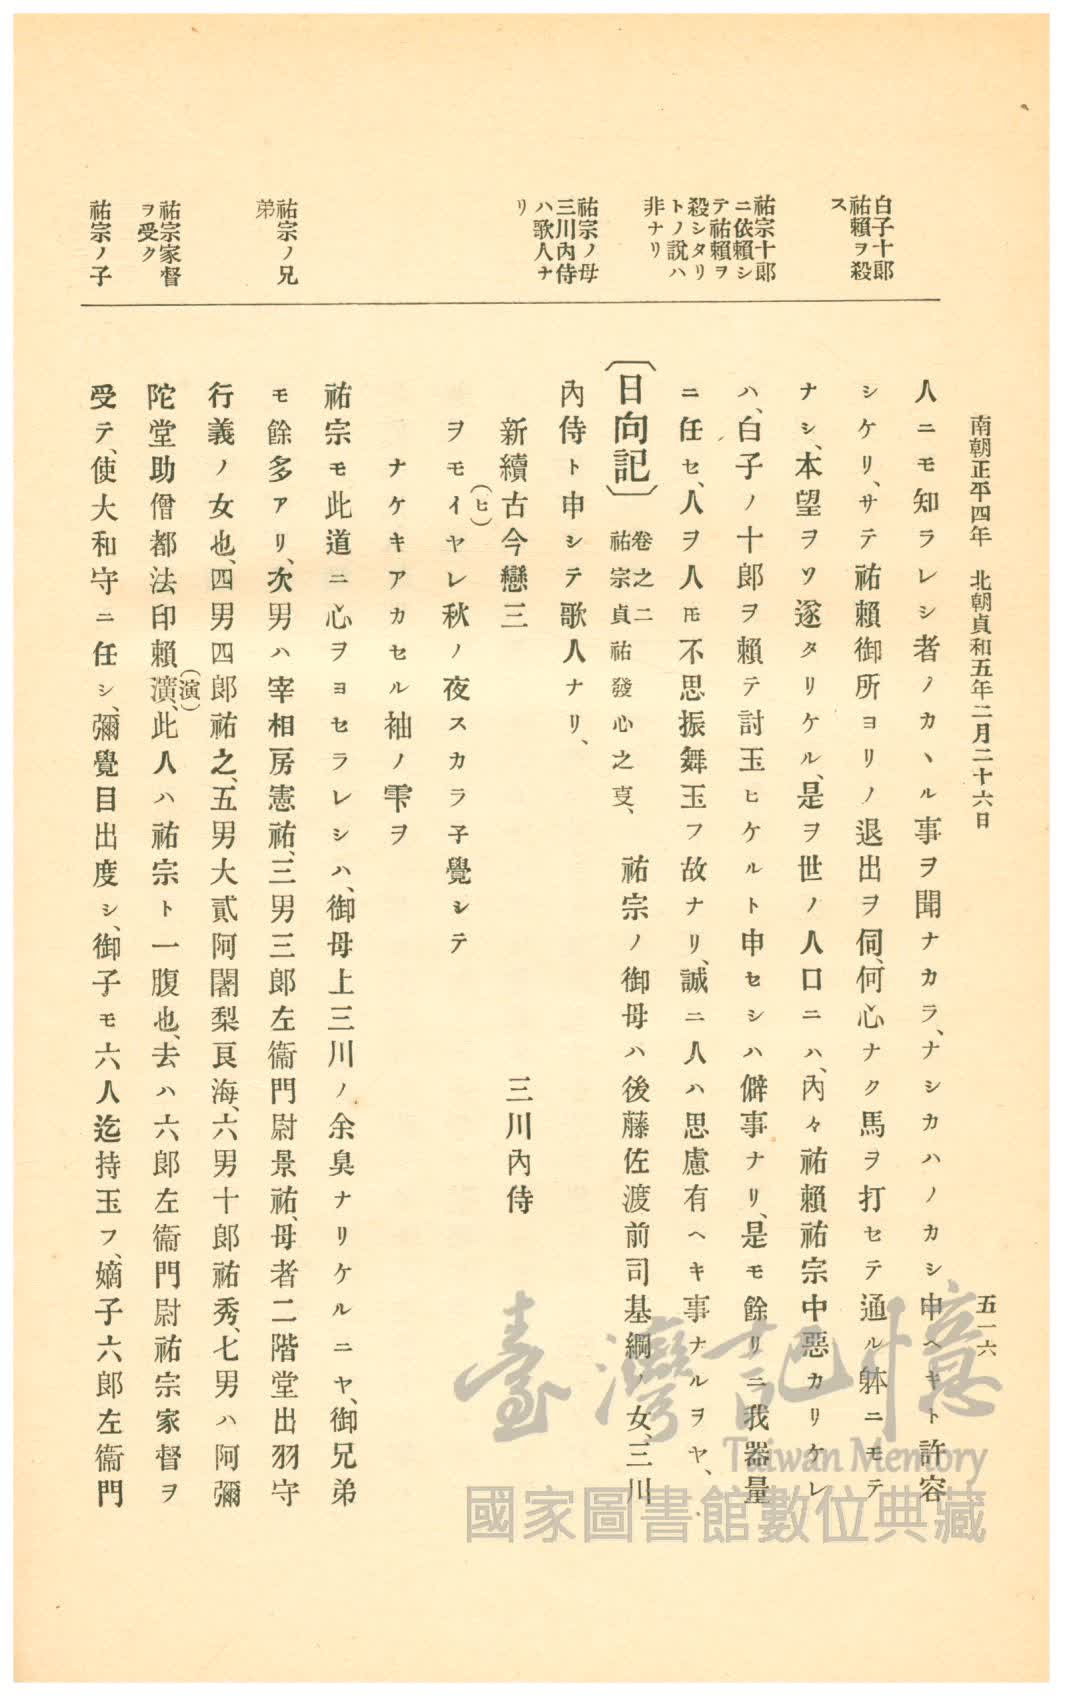 南朝正平四年　北朝貞和五年二月二十六日
五一六
白子十郎
祐賴ヲ殺
ス
祐宗十郎
ニ依賴シ
テ祐賴ヲ
殺シタリ
トノ說ハ
非ナリ
祐宗ノ母
三川內侍
ハ歌人ナ
リ
祐宗ノ兄
弟
祐宗家督
ヲ受ク
祐宗ノ子
人ニモ知ラレシ者ノカヽル事ヲ聞ナカラ、ナシカハノカシ申ヘキト許容
シケリ、サテ祐賴御所ヨリノ退出ヲ伺、何心ナク馬ヲ打セテ通ル躰ニモテ
ナシ、本望ヲソ遂タリケル、是ヲ世ノ人口ニハ、內々祐賴祐宗中惡カリケレ
ハ、白子ノ十郎ヲ賴テ討玉ヒケルト申セシハ僻事ナリ、是モ餘リニ我器量
ニ任セ、人ヲ人トモ不思振舞玉フ故ナリ、誠ニ人ハ思慮有ヘキ事ナルヲヤ、
〔日向記〕卷之二　祐宗貞祐發心之叓、　祐宗ノ御母ハ後藤佐渡前司基綱ノ女、三川
內侍ト申シテ歌人ナリ、
新續古今戀三　三川內侍
ヲモイ(ヒ)ヤレ秋ノ夜スカラ子覺シテ
ナケキアカセル袖ノ雫ヲ
祐宗モ此道ニ心ヲヨセラレシハ、御母上三川ノ余臭ナリケルニヤ、御兄弟
モ餘多アリ、次男ハ宰相房憲祐、三男三郎左衞門尉景祐、母者二階堂出羽守
行義ノ女也、四男四郎祐之、五男大貳阿闍梨良海、六男十郎祐秀、七男ハ阿彌
陀堂助僧都法印賴濥(演)、此人ハ祐宗ト一腹也、去ハ六郎左衞門尉祐宗家督ヲ
受テ、使大和守ニ任シ、彌覺目出度シ、御子モ六人迄持玉フ、嫡子六郎左衞門
臺灣記憶
Taiwan Memory
國家圖書館數位典藏